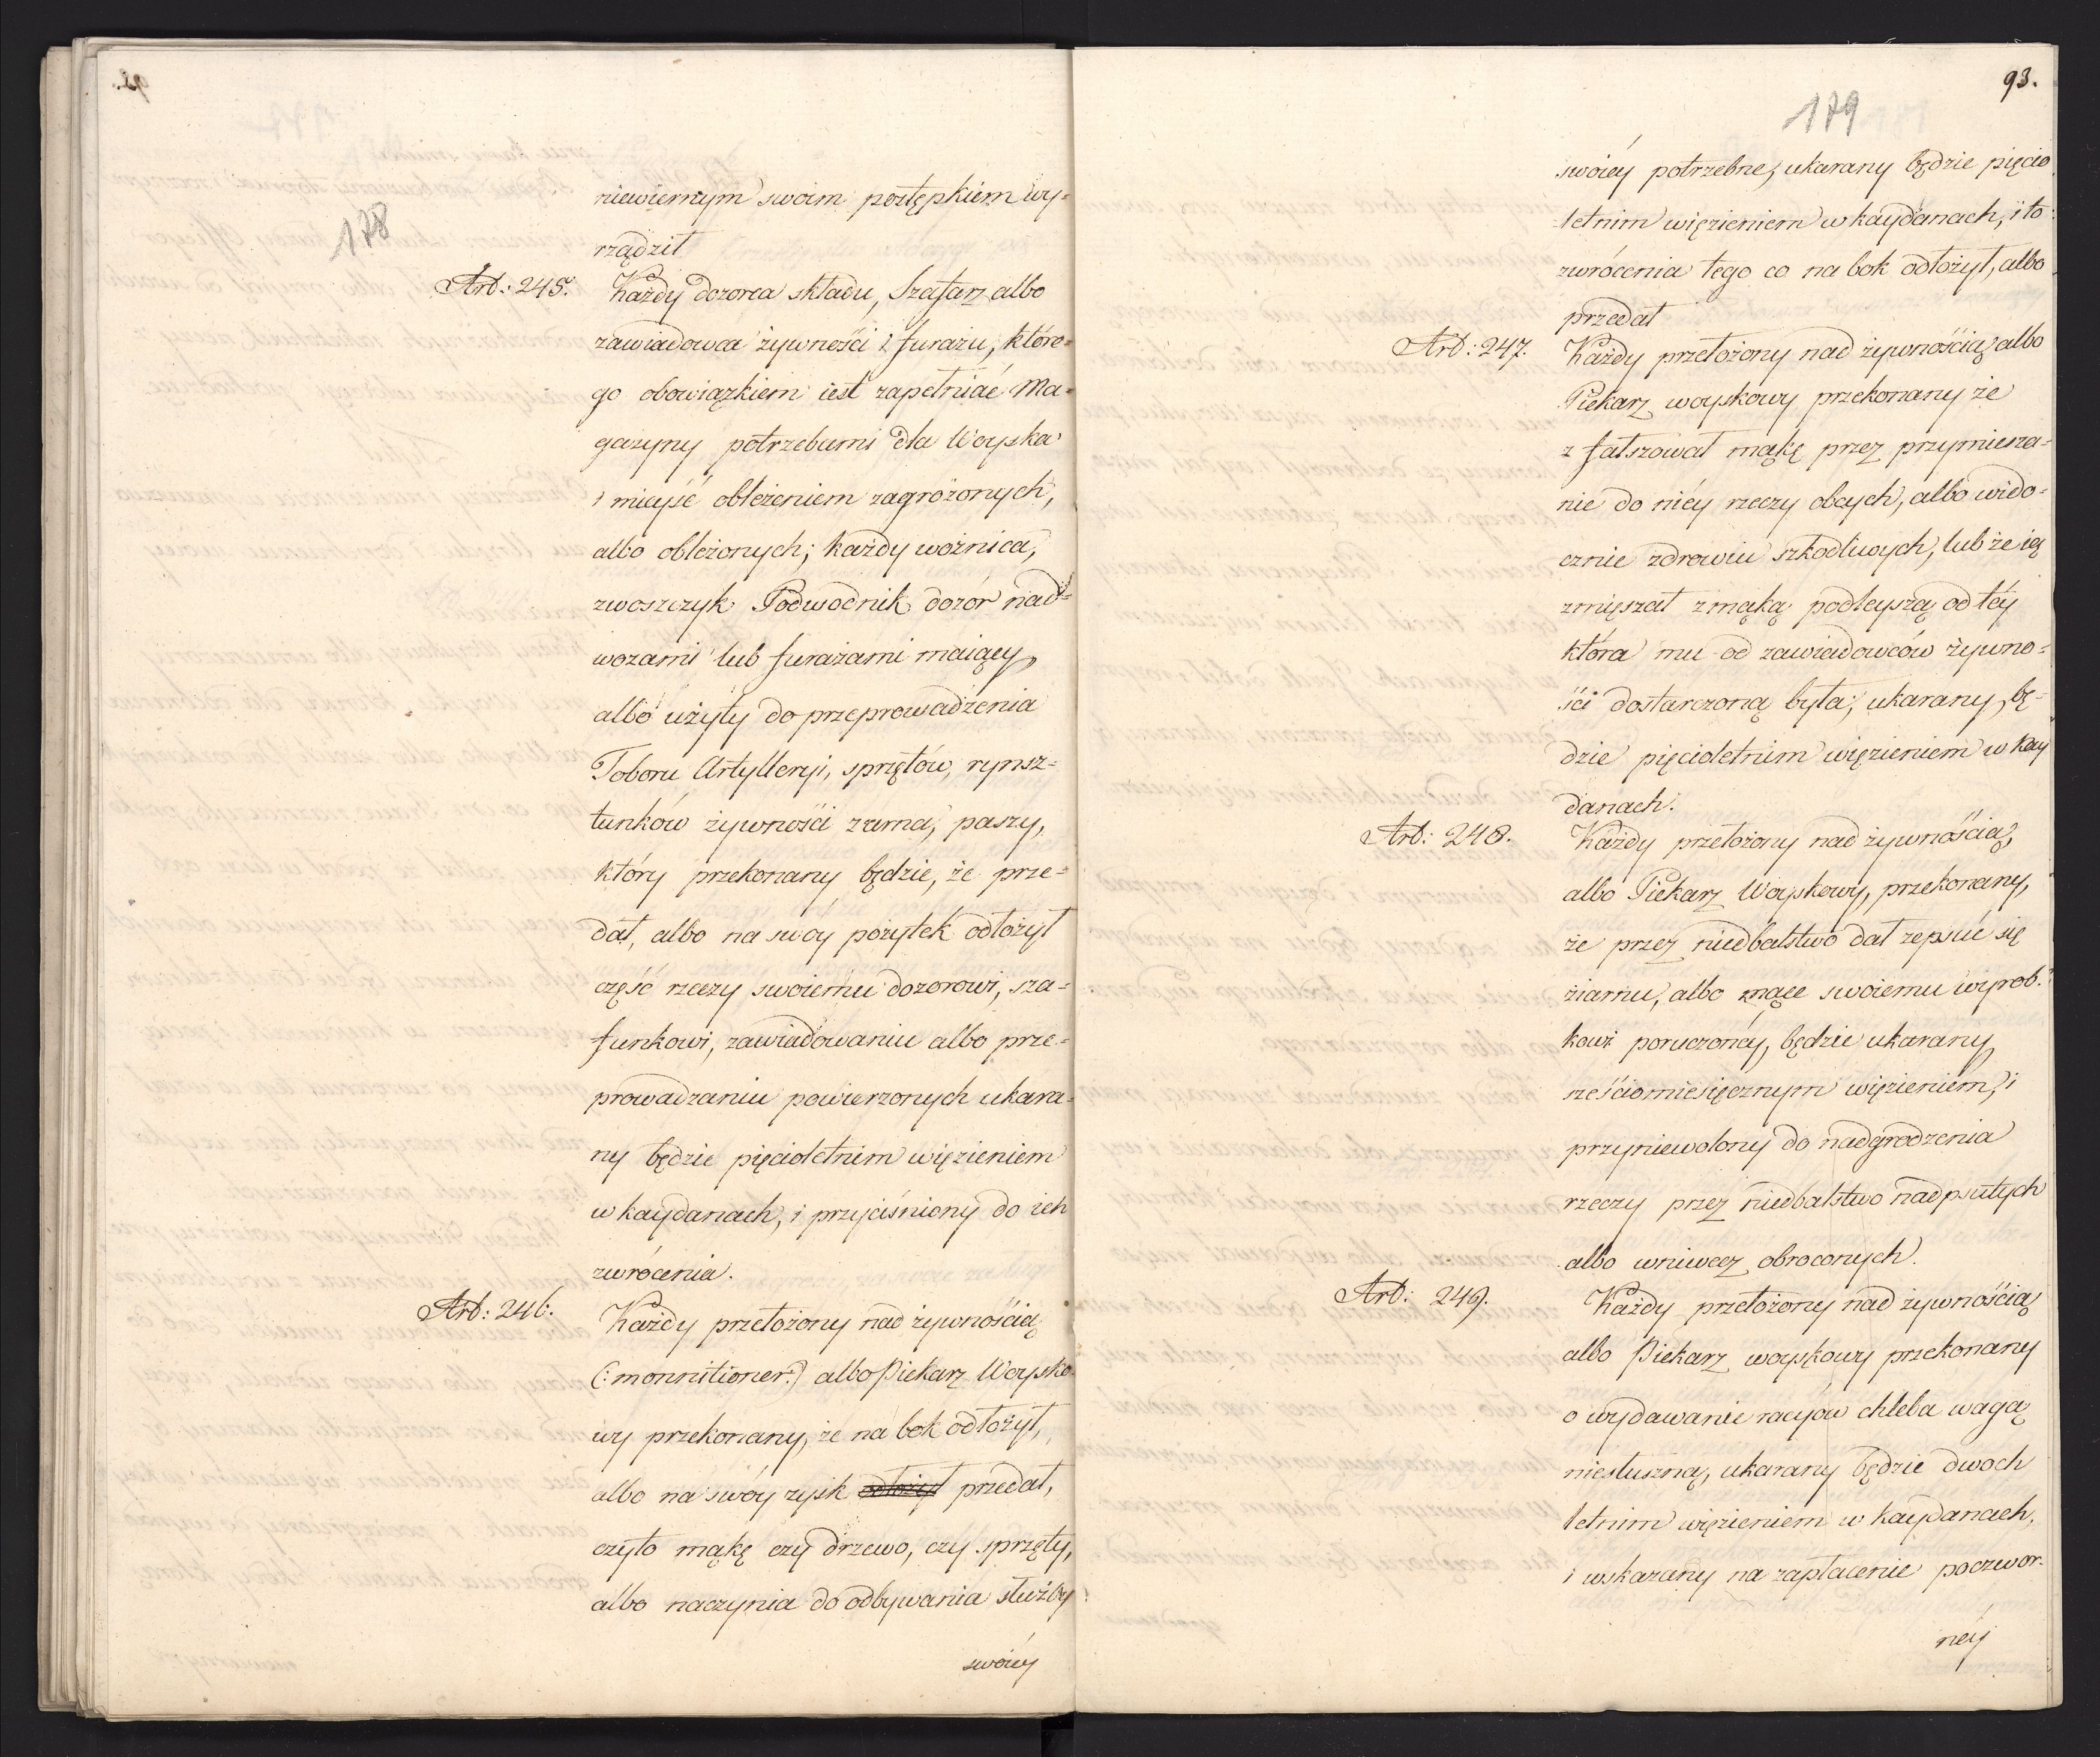 178
niewiernym swoim postępkiem wy=
rządził
Art: 245. Każdy dozorca składu, Szafarz albo
zawiadowca żywności i furażu, które=
go obowiązkiem iest zapełniać Ma=
gazyny potrzebami dla Woyska
i mieysć oblężeniem zagrożonych,
albo oblężonych; każdy woźnica,
zwoszczyk Podwodnik dozór nad=
wozami lub furażami maiący,
albo użyty do przeprowadzenia
Toboru Artylleryi, sprzętów, rynsz=
tunków żywności zarna, paszy,
który przekonany będzie, że prze=
dał, albo na swóy pożytek odłożył
część rzeczy swoiemu dozorowi, sza=
funkowi, zawiadowaniu albo prze=
prowadzaniu powierzonych ukara=
ny będzie pięcioletnim więzieniem
w kaydanach, i przyciśniony do ich
zwrócenia.
Art: 246. Każdy przełożony nad żywnością
(: monnitioner:) albo Piekarz Woysko=
wy przekonany, że na bok odłożył,
albo na swóy zysk odłożył przedał,
czyto mąkę czy drzewo, czy sprzęty,
albo naczynia do odbywania służby
swoiey
93.
179
swoiéy potrzebne, ukarany będzie pięcio
letnim więzieniem w kaydanach, i to
zwrócenia tego co na bok odłożył, albo
przedał
Art: 247. Każdy przełożony nad żywnością albo
Piekarz woyskowy przekonany że
z fałszował mąkę przez przymiesza=
nie do niéy rzeczy obcych, albo wido=
cznie zdrowiu szkodliwych, lub że ią
zmięszał z mąką podleyszą od téy
która mu od zawiadowców żywno=
ści dostarczoną była, ukarany bę=
dzie pięcioletnim więzieniem w kay
danach.
Art: 248. Każdy przełożony nad żywnością,
albo Piekarz Woyskowy, przekonany,
że przez niedbalstwo dał zepsuć się
ziarnu, albo mące swoiemu wyrob=
kowi poruczonéy, będzie ukarany
sześciomiesięcznym więzieniem, i
przyniewolony do nadgrodzenia
rzeczy przez niedbalstwo nadpsutych
albo wniwecz obroconych.
Art: 249. Każdy przełożony nad żywnością
albo Piekarz woyskowy przekonany
o wydawanie racyów chleba wagą
niesłuszną, ukarany będzie dwoch
letnim więzieniem w kaydanach,
i wskazany na zapłacenie poczwor=
néy